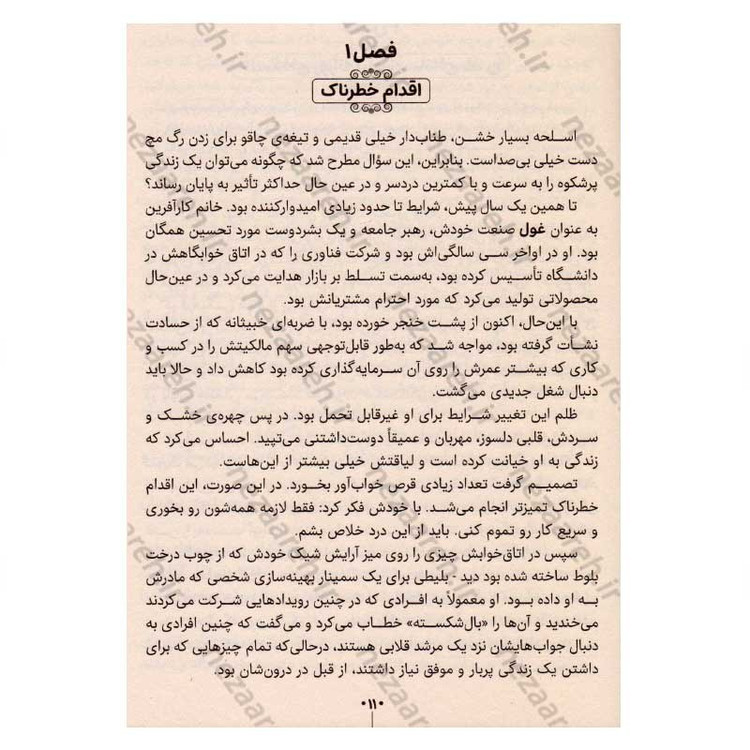 فصل ۱
اقدام خطرناک
اسلحه بسیار خشن، طناب‌دار خیلی قدیمی و تیغه‌ی چاقو برای زدن رگ مچ
دست خیلی بی‌صداست. بنابراین، این سؤال مطرح شد که چگونه می‌توان یک زندگی
پرشکوه را به سرعت و با کمترین دردسر و در عین حال حداکثر تأثیر به پایان رساند؟
تا همین یک سال پیش، شرایط تا حدود زیادی امیدوارکننده بود. خانم کارآفرین
به عنوان غول صنعت خودش، رهبر جامعه و یک بشردوست مورد تحسین همگان
بود. او در اواخر سی سالگی‌اش بود و شرکت فناوری را که در اتاق خوابگاهش در
دانشگاه تأسیس کرده بود، به‌سمت تسلط بر بازار هدایت می‌کرد و در عین‌حال
محصولاتی تولید می‌کرد که مورد احترام مشتریانش بود.
با این‌حال، اکنون از پشت خنجر خورده بود، با ضربه‌ای خبیثانه که از حسادت
نشأت گرفته بود، مواجه شد که به‌طور قابل‌توجهی سهم مالکیتش را در کسب و
کاری که بیشتر عمرش را روی آن سرمایه‌گذاری کرده بود کاهش داد و حالا باید
دنبال شغل جدیدی می‌گشت.
ظلم این تغییر شرایط برای او غیرقابل تحمل بود. در پس چهره‌ی خشک و
سردش، قلبی دلسوز، مهربان و عمیقاً دوست‌داشتنی می‌تپید. احساس می‌کرد که
زندگی به او خیانت کرده است و لیاقتش خیلی بیشتر از این‌هاست.
تصمیم گرفت تعداد زیادی قرص خواب‌آور بخورد. در این صورت، این اقدام
خطرناک تمیزتر انجام می‌شد. با خودش فکر کرد: فقط لازمه همه‌شون رو بخوری
و سریع کار رو تموم کنی. باید از این درد خلاص بشم.
سپس در اتاق‌خوابش چیزی را روی میز آرایش شیک خودش که از چوب درخت
بلوط ساخته شده بود دید - بلیطی برای یک سمینار بهینه‌سازی شخصی که مادرش
به او داده بود. او معمولاً به افرادی که در چنین رویدادهایی شرکت می‌کردند
می‌خندید و آن‌ها را «بال‌شکسته» خطاب می‌کرد و می‌گفت که چنین افرادی به
دنبال جواب‌هایشان نزد یک مرشد قلابی هستند، درحالی‌که تمام چیزهایی که برای
داشتن یک زندگی پربار و موفق نیاز داشتند، از قبل در درون‌شان بود.
۰۱۱۰
nezaareh.ir